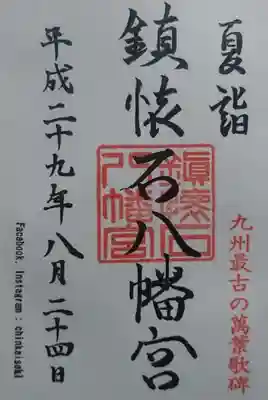 夏詣
九州最古の萬葉歌碑
鎮懐石八幡宮
鎮懐石八幡宮
平成二十九年八月二十四日
Facebook, Instagram : chinkaiseki